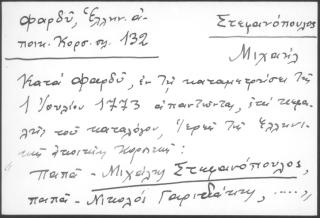 Φαρδῦ, Ἑλλην. ἀ-
ποικ. Κορσ. σ. 132
Στεφανόπουλος
Μιχαήλ
Κατὰ Φαρδῦ, ἐν τῇ καταμετρήσει τῆς
1 Ἰουλίου 1773 ἀπαντῶνται, ἐπὶ κεφα-
λῆς τοῦ καταλόγου, Ἱερεῖς τῆς Ἑλληνι-
κῆς ἀποικίας Κορσικῆς:
"Παπᾶ - Μιχάλης Στεφανόπουλος,
παπᾶ - Νικολός .....,